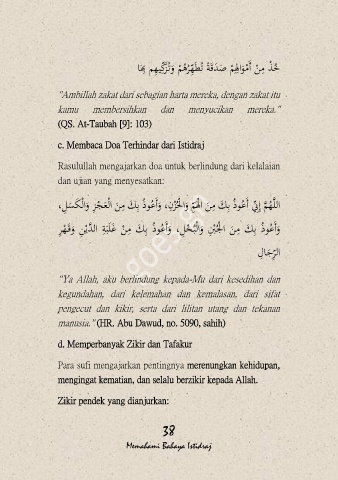 خُذْ مِنْ أَمْوَالِهِمْ صَدَقَةً تُطَهِّرُهُمْ وَتُزَكِّيهِم بِهَا
"Ambillah zakat dari sebagian harta mereka, dengan zakat itu
kamu membersihkan dan menyucikan mereka."
(QS. At-Taubah [9]: 103)
c. Membaca Doa Terhindar dari Istidraj
Rasulullah mengajarkan doa untuk berlindung dari kelalaian
dan ujian yang menyesatkan:
اللَّهُمَّ إِنِّي أَعُوذُ بِكَ مِنَ الْهَمِّ وَالْحُزْنِ، وَأَعُوذُ بِكَ مِنَ الْعَجْزِ وَالْكَسَلِ،
وَأَعُوذُ بِكَ مِنَ الْجُبْنِ وَالْبُخْلِ، وَأَعُوذُ بِكَ مِنْ غَلَبَةِ الدَّيْنِ وَقَهْرِ
الرِّجَالِ
"Ya Allah, aku berlindung kepada-Mu dari kesedihan dan
kegundahan, dari kelemahan dan kemalasan, dari sifat
pengecut dan kikir, serta dari lilitan utang dan tekanan
manusia." (HR. Abu Dawud, no. 5090, sahih)
d. Memperbanyak Zikir dan Tafakur
Para sufi mengajarkan pentingnya merenungkan kehidupan,
mengingat kematian, dan selalu berzikir kepada Allah.
Zikir pendek yang dianjurkan:
38
Memahami Bahaya Istidraj